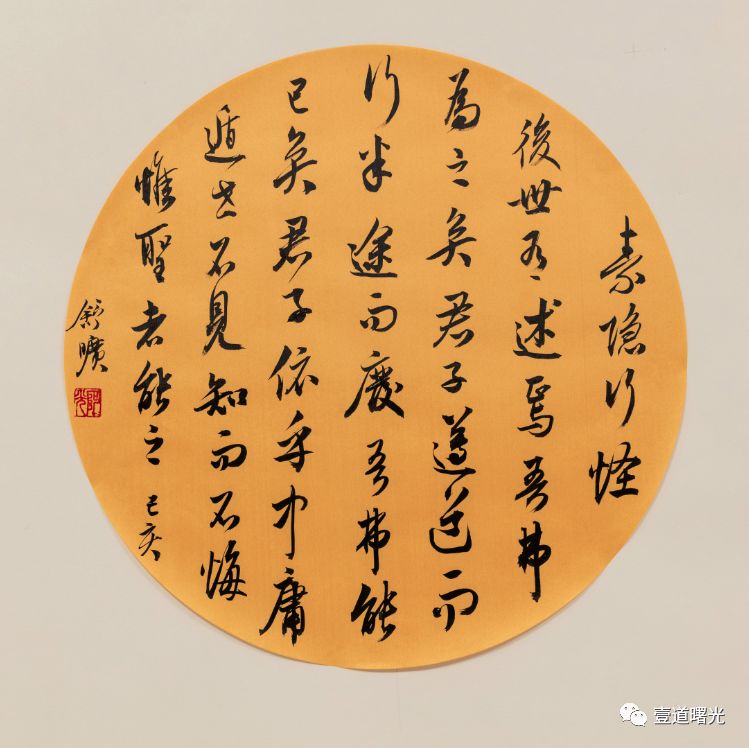 素隐行怪
後世有述焉吾弗
為之矣君子遵道而
行半途而廢吾弗能
已矣君子依乎中庸
遁世不見知而不悔
惟聖者能之 己亥
舒曠
壹道曙光